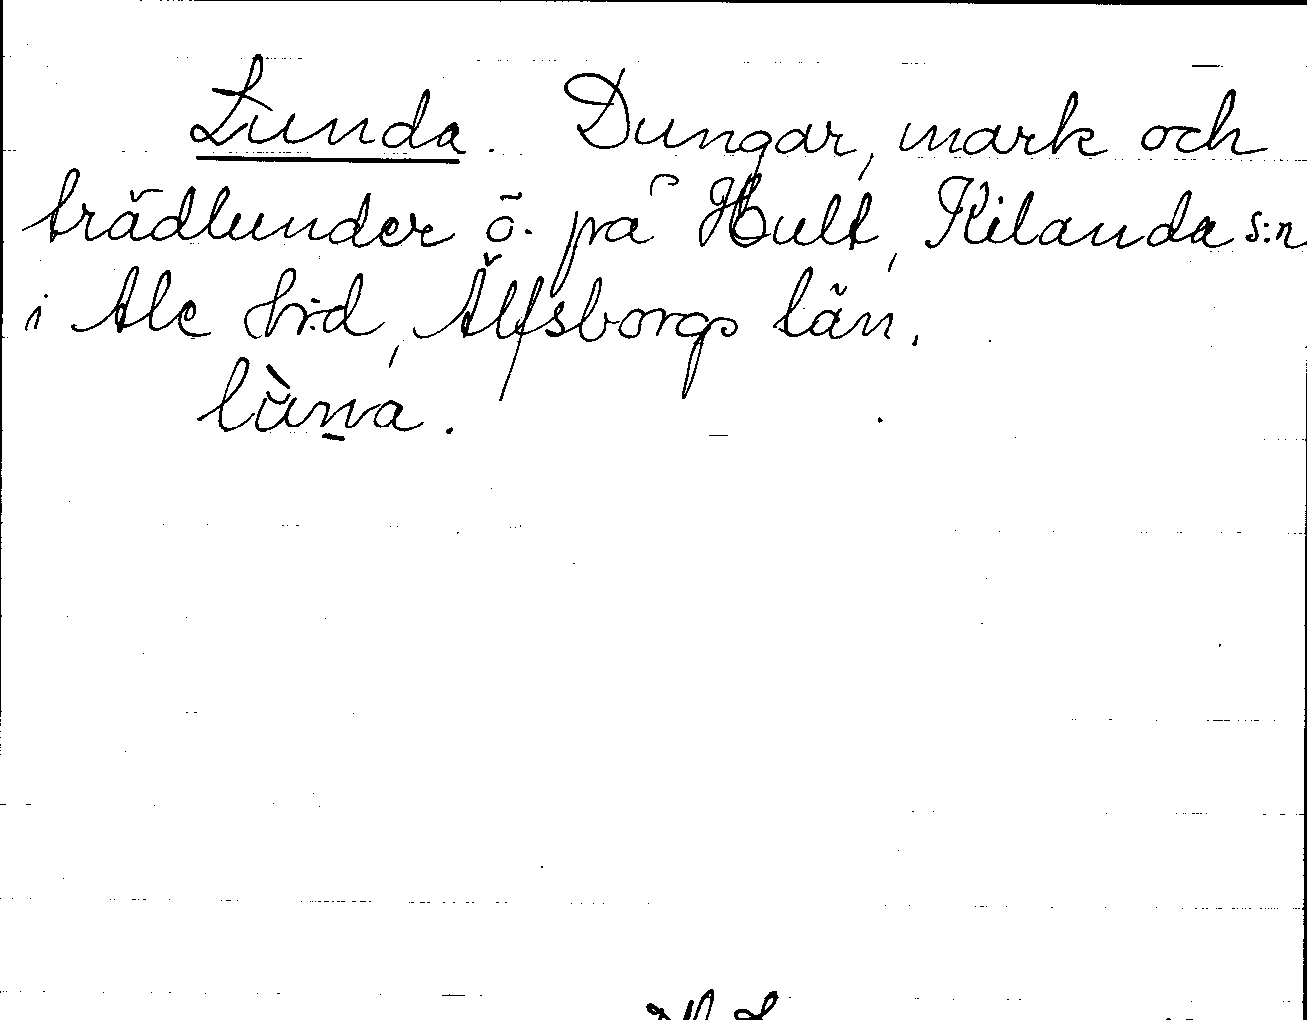 Lunda. Dungar, mark och
trädlunder ö. på Hult, Kilanda s:n
i Ale hrd, Älfsborgs län.
lùn̲a.